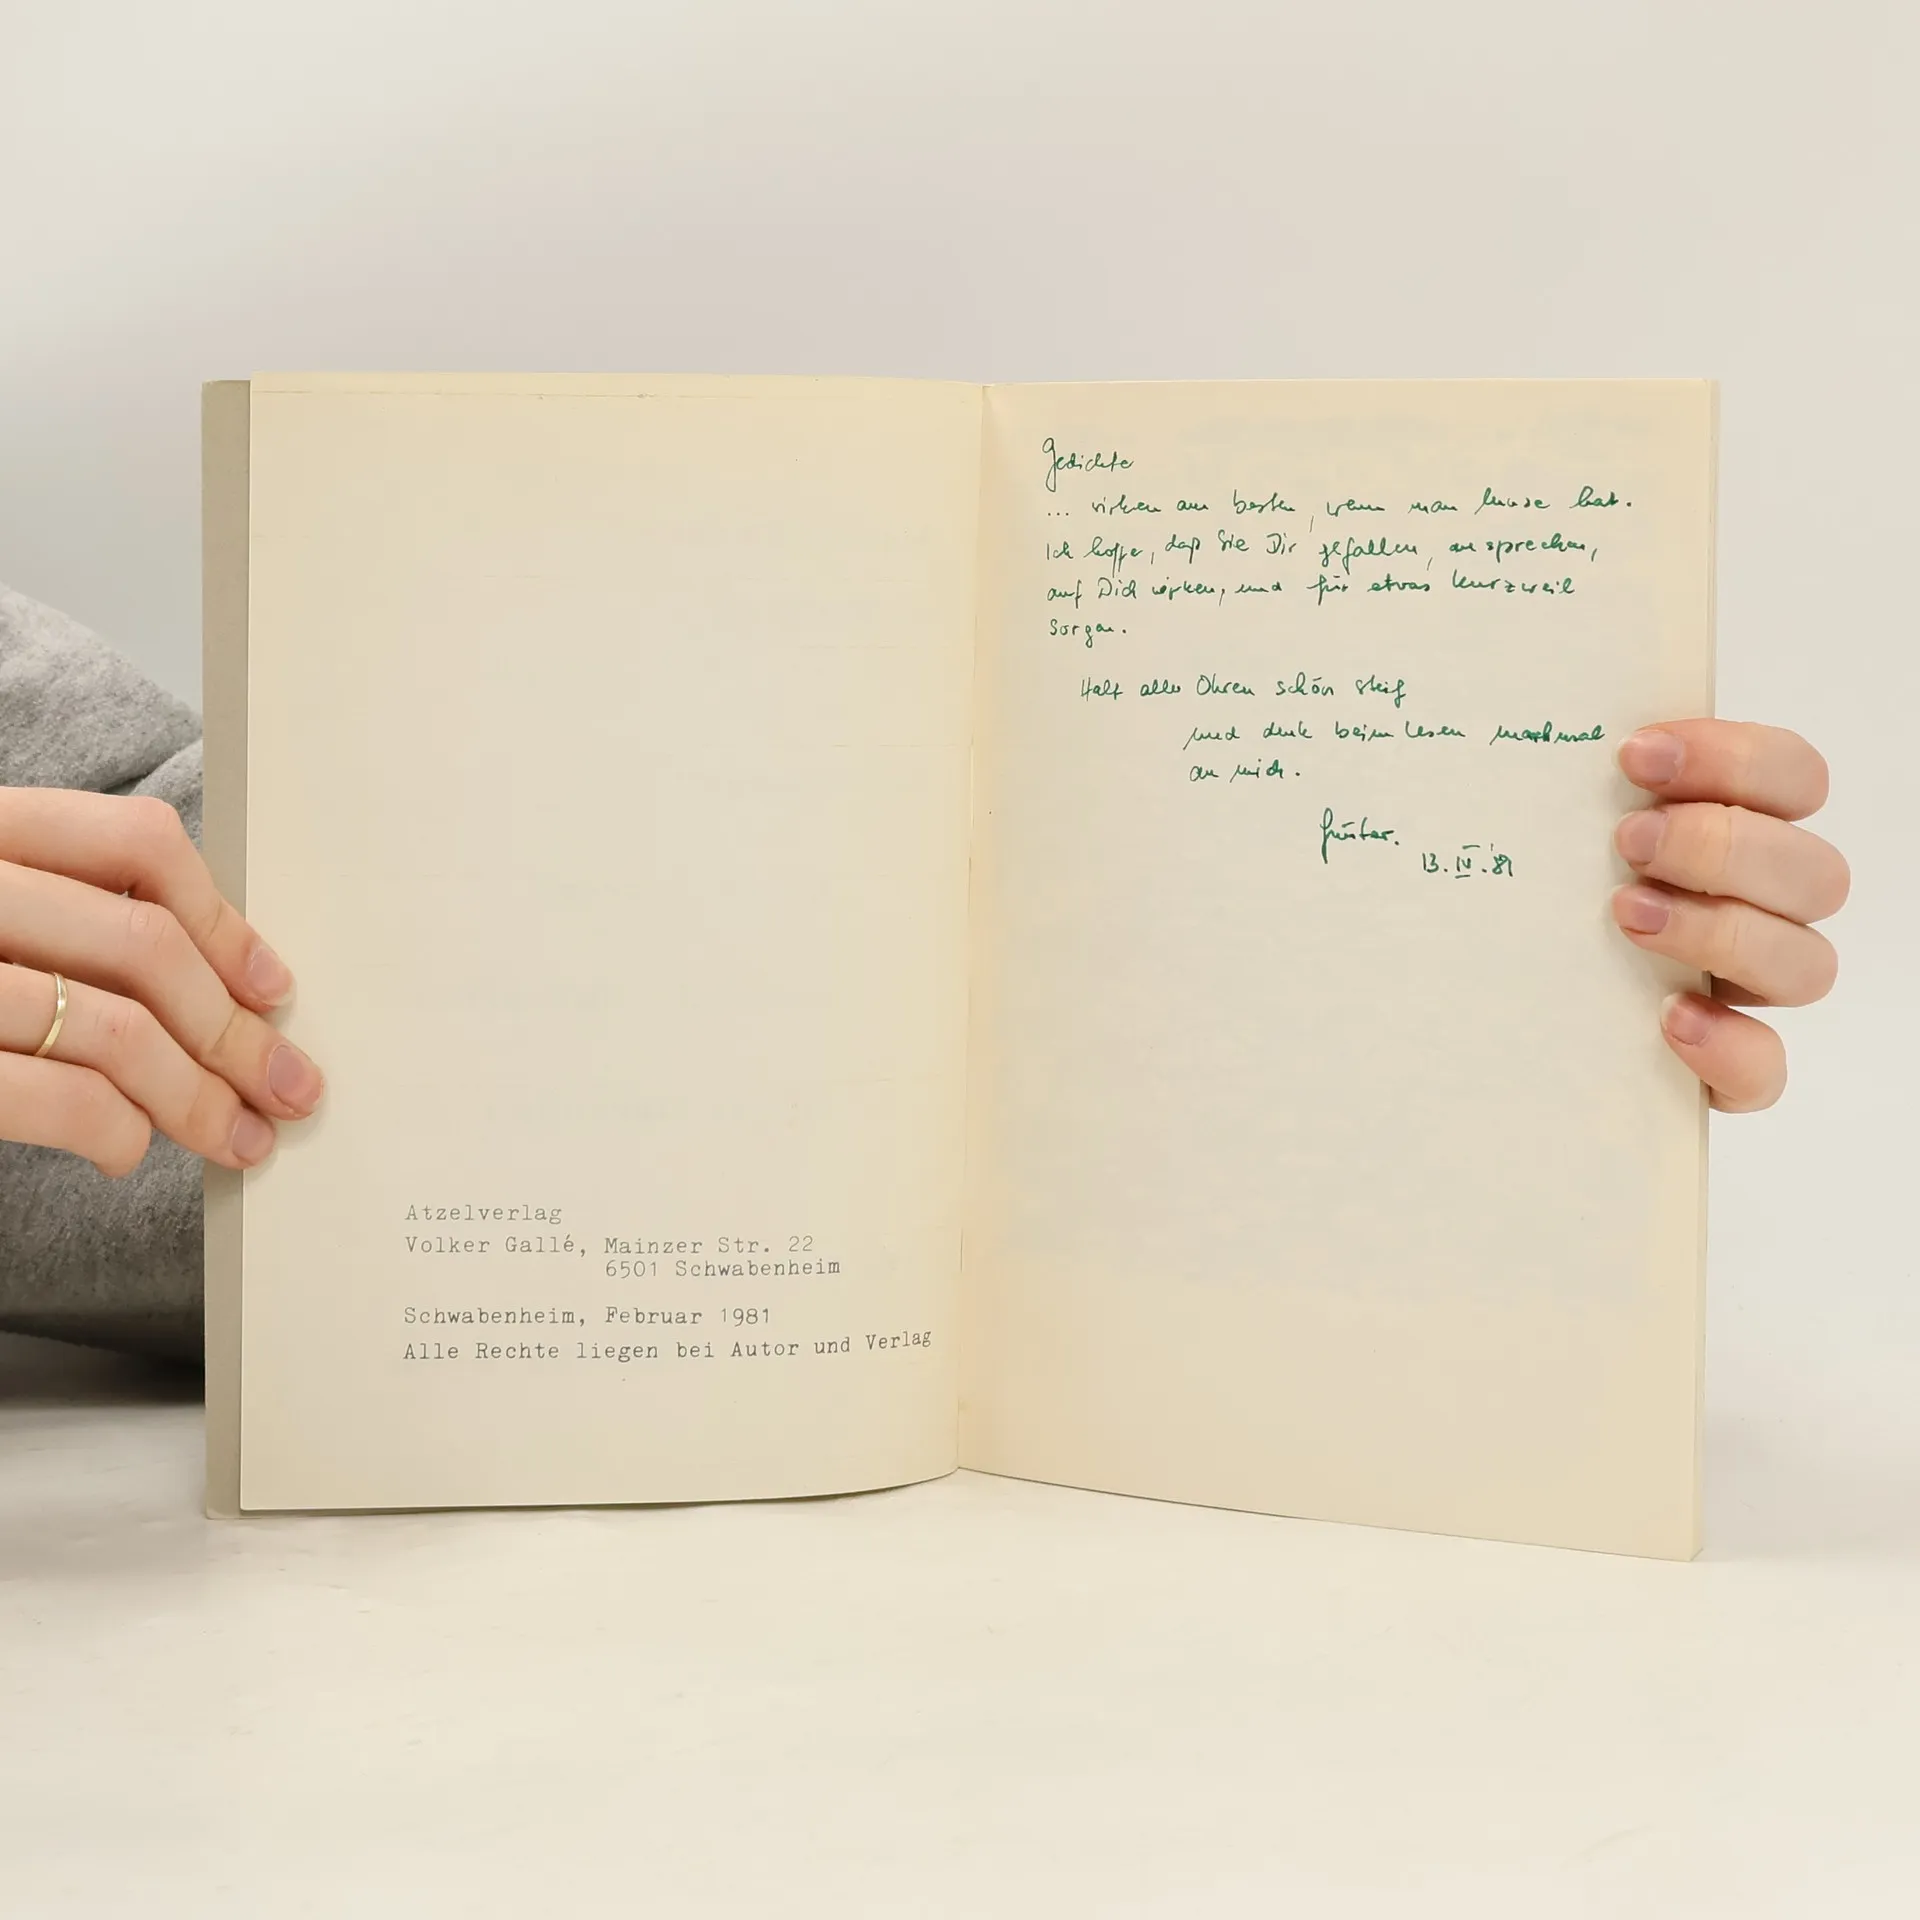 Atzelverlag
Volker Gallé, Mainzer Str. 22
6501 Schwabenheim
Schwabenheim, Februar 1981
Alle Rechte liegen bei Autor und Verlag
Gedichte
... wirken am besten, wenn man hat.
Ich hoffe, daß Sie Dir gefallen, ansprechen,
auf Dich wirken, und für etwas Kurzweil
sorgen.
Halt alle Ohren schön steif
und denk beim Lesen manchmal
an mich.
Günter.
13. IV. '81